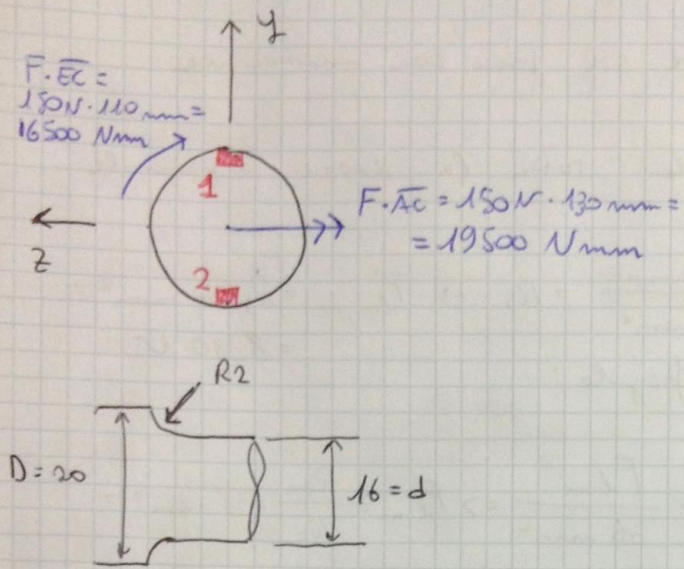 y
F̅·E̅C̅ =
150N·110 mm =
16500 Nmm
1
F·A̅C̅ = 150N·130mm =
= 19500 Nmm
z
2
R2
D=20
16=d